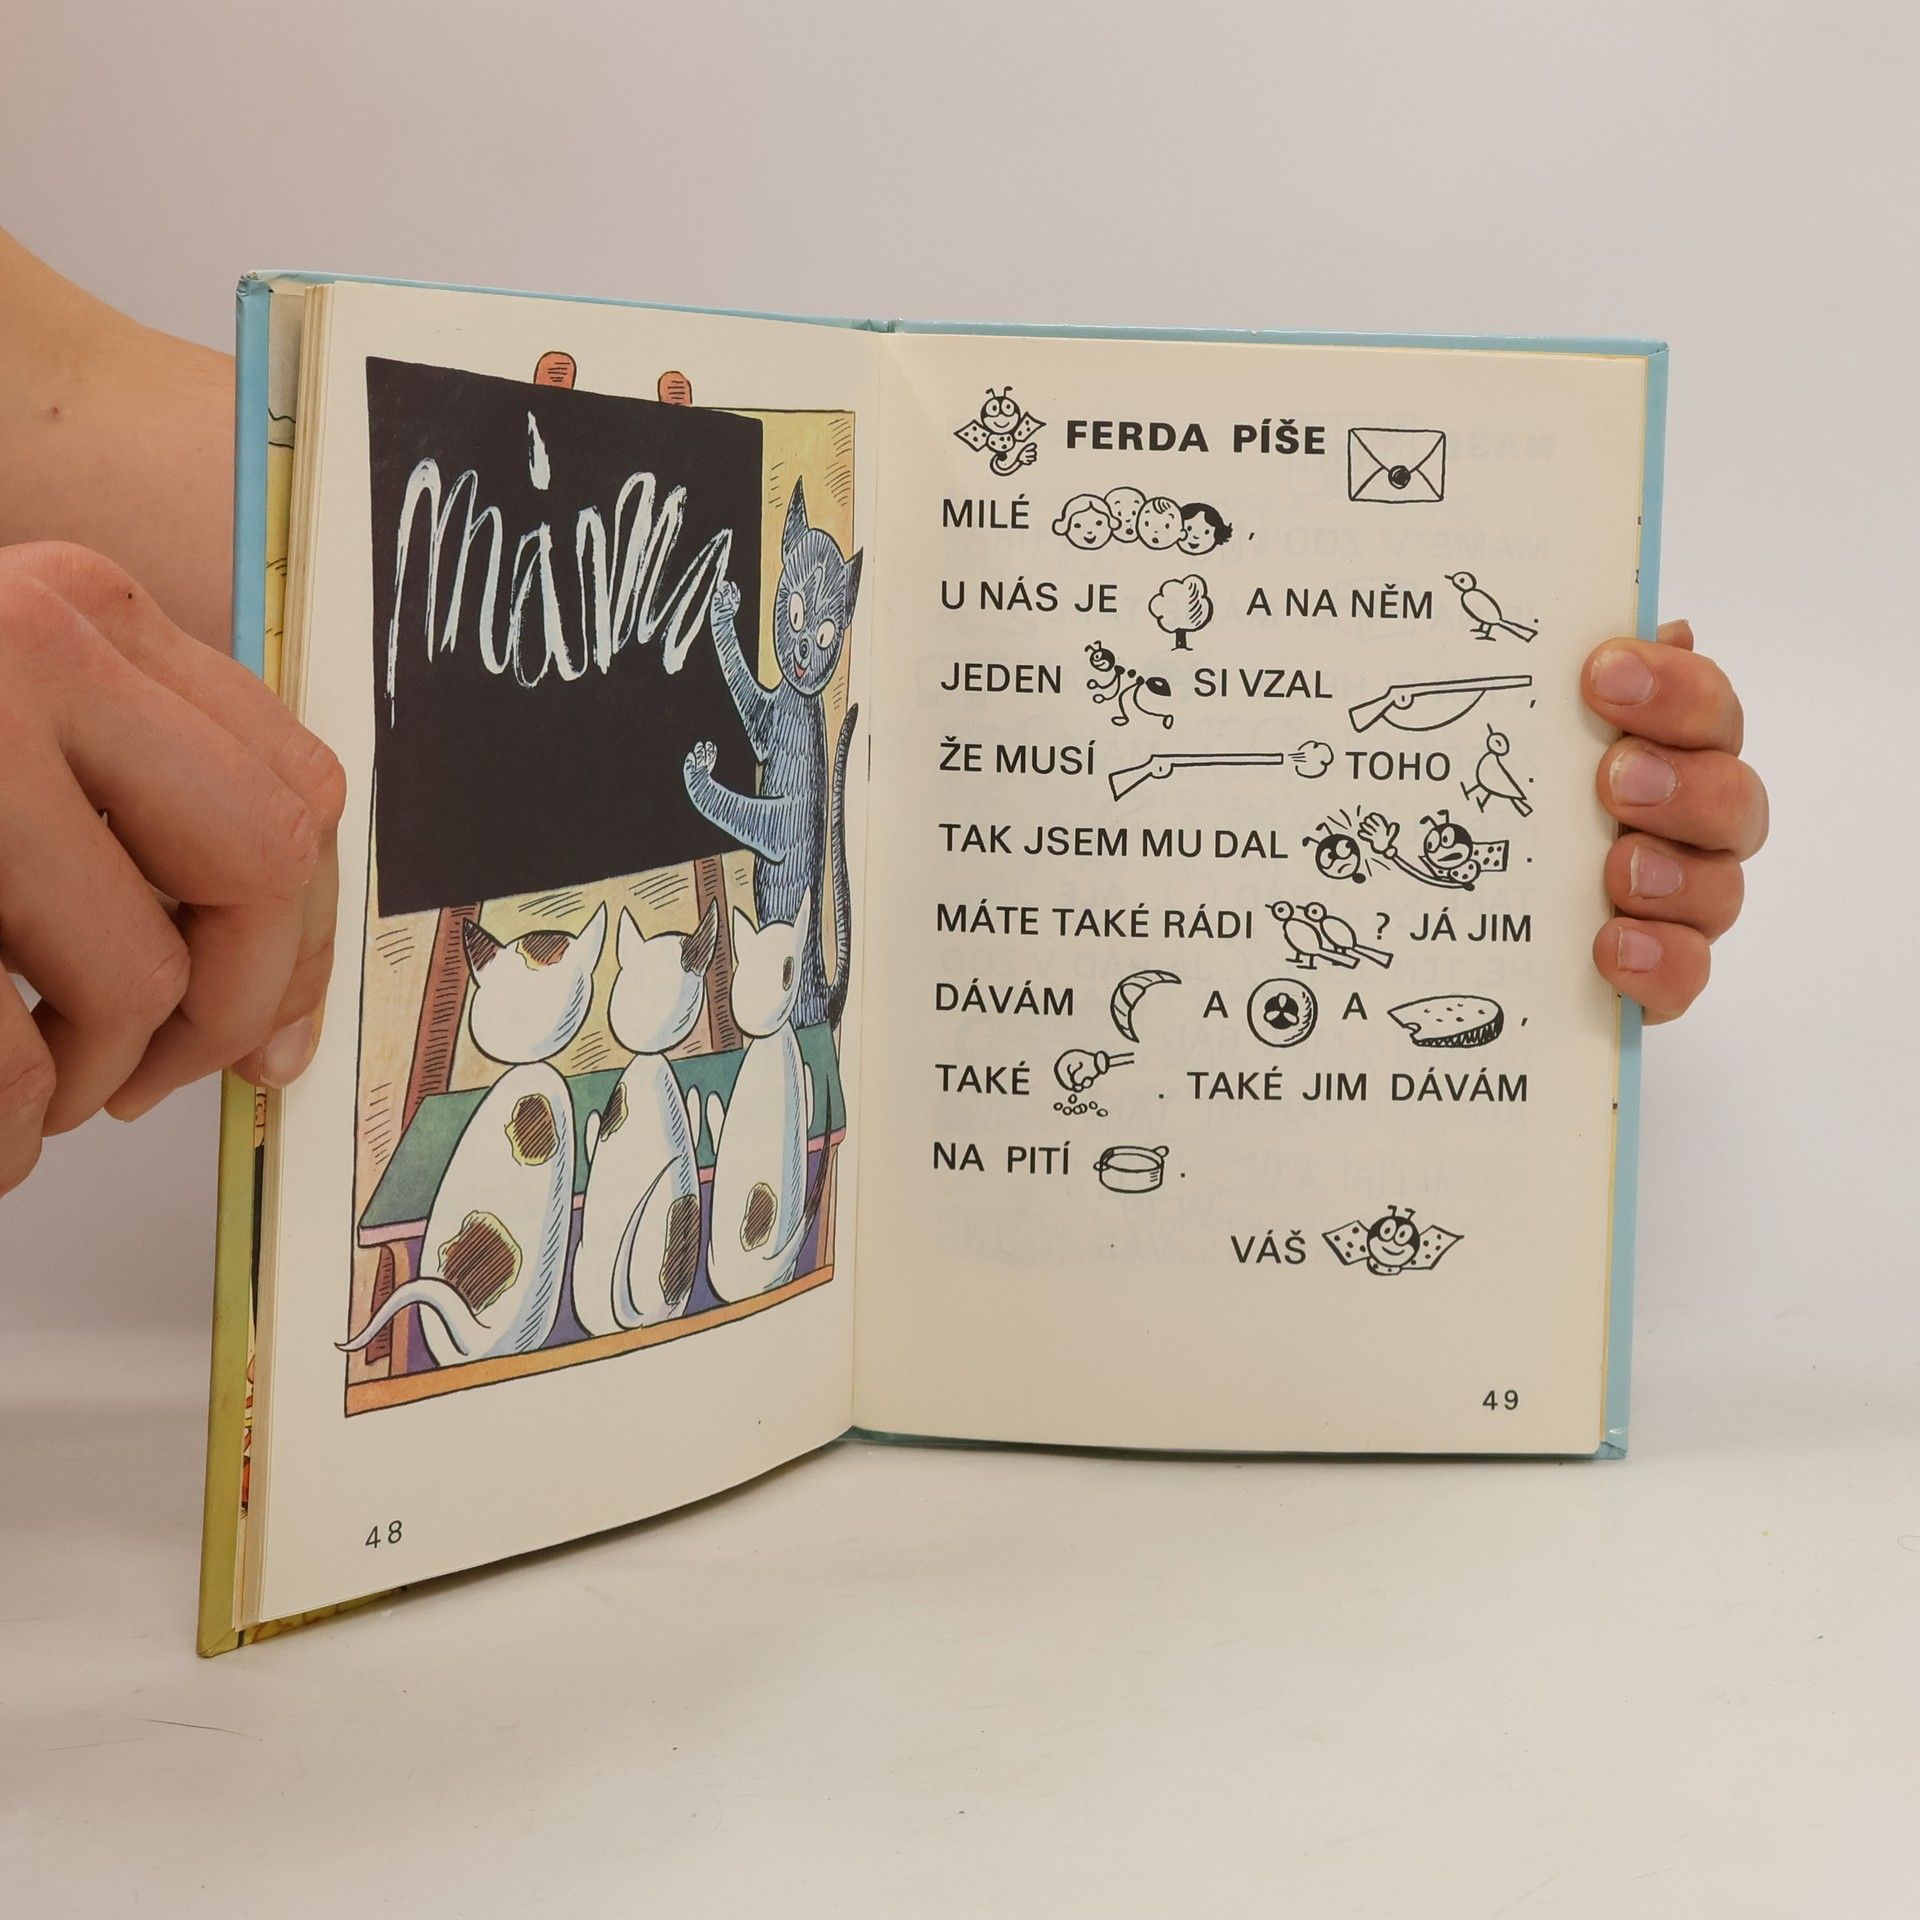 máma
48
FERDA PÍŠE
MILÉ ,
U NÁS JE A NA NĚM .
JEDEN SI VZAL ,
ŽE MUSÍ TOHO .
TAK JSEM MU DAL .
MÁTE TAKÉ RÁDI ? JÁ JIM
DÁVÁM A A ,
TAKÉ . TAKÉ JIM DÁVÁM
NA PITÍ .
VÁŠ
49